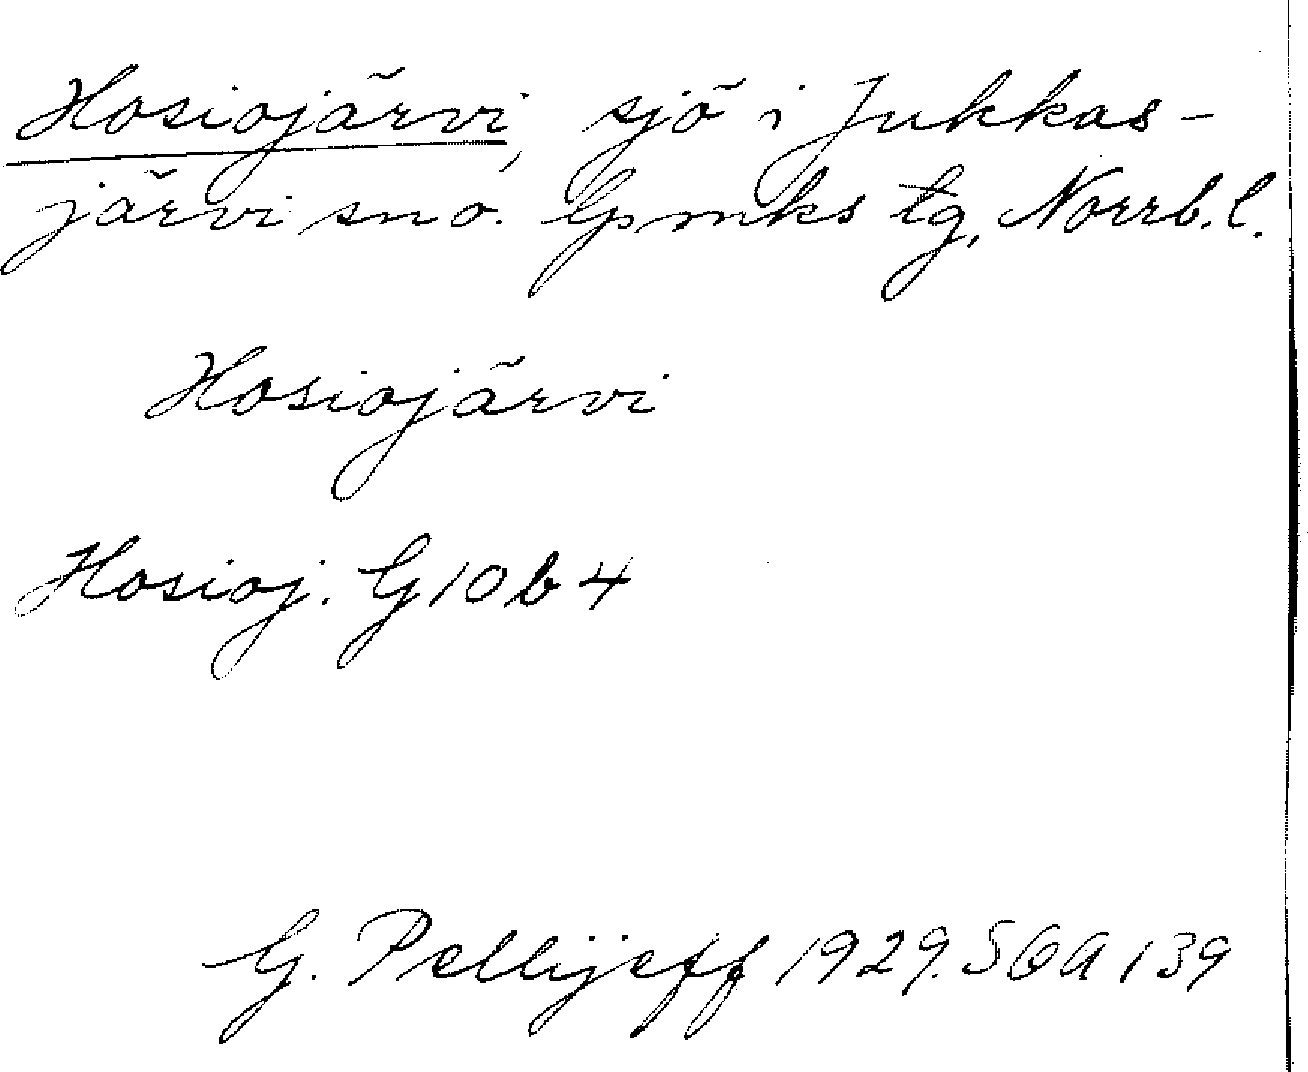 Hosiojärvi, sjö i Jukkas-
järvi sno. Gmks tg, Norrb. l.
Hosiojärvi
Hosioj. G 10 b 4
G. Pellijeff 1929. SOA 139